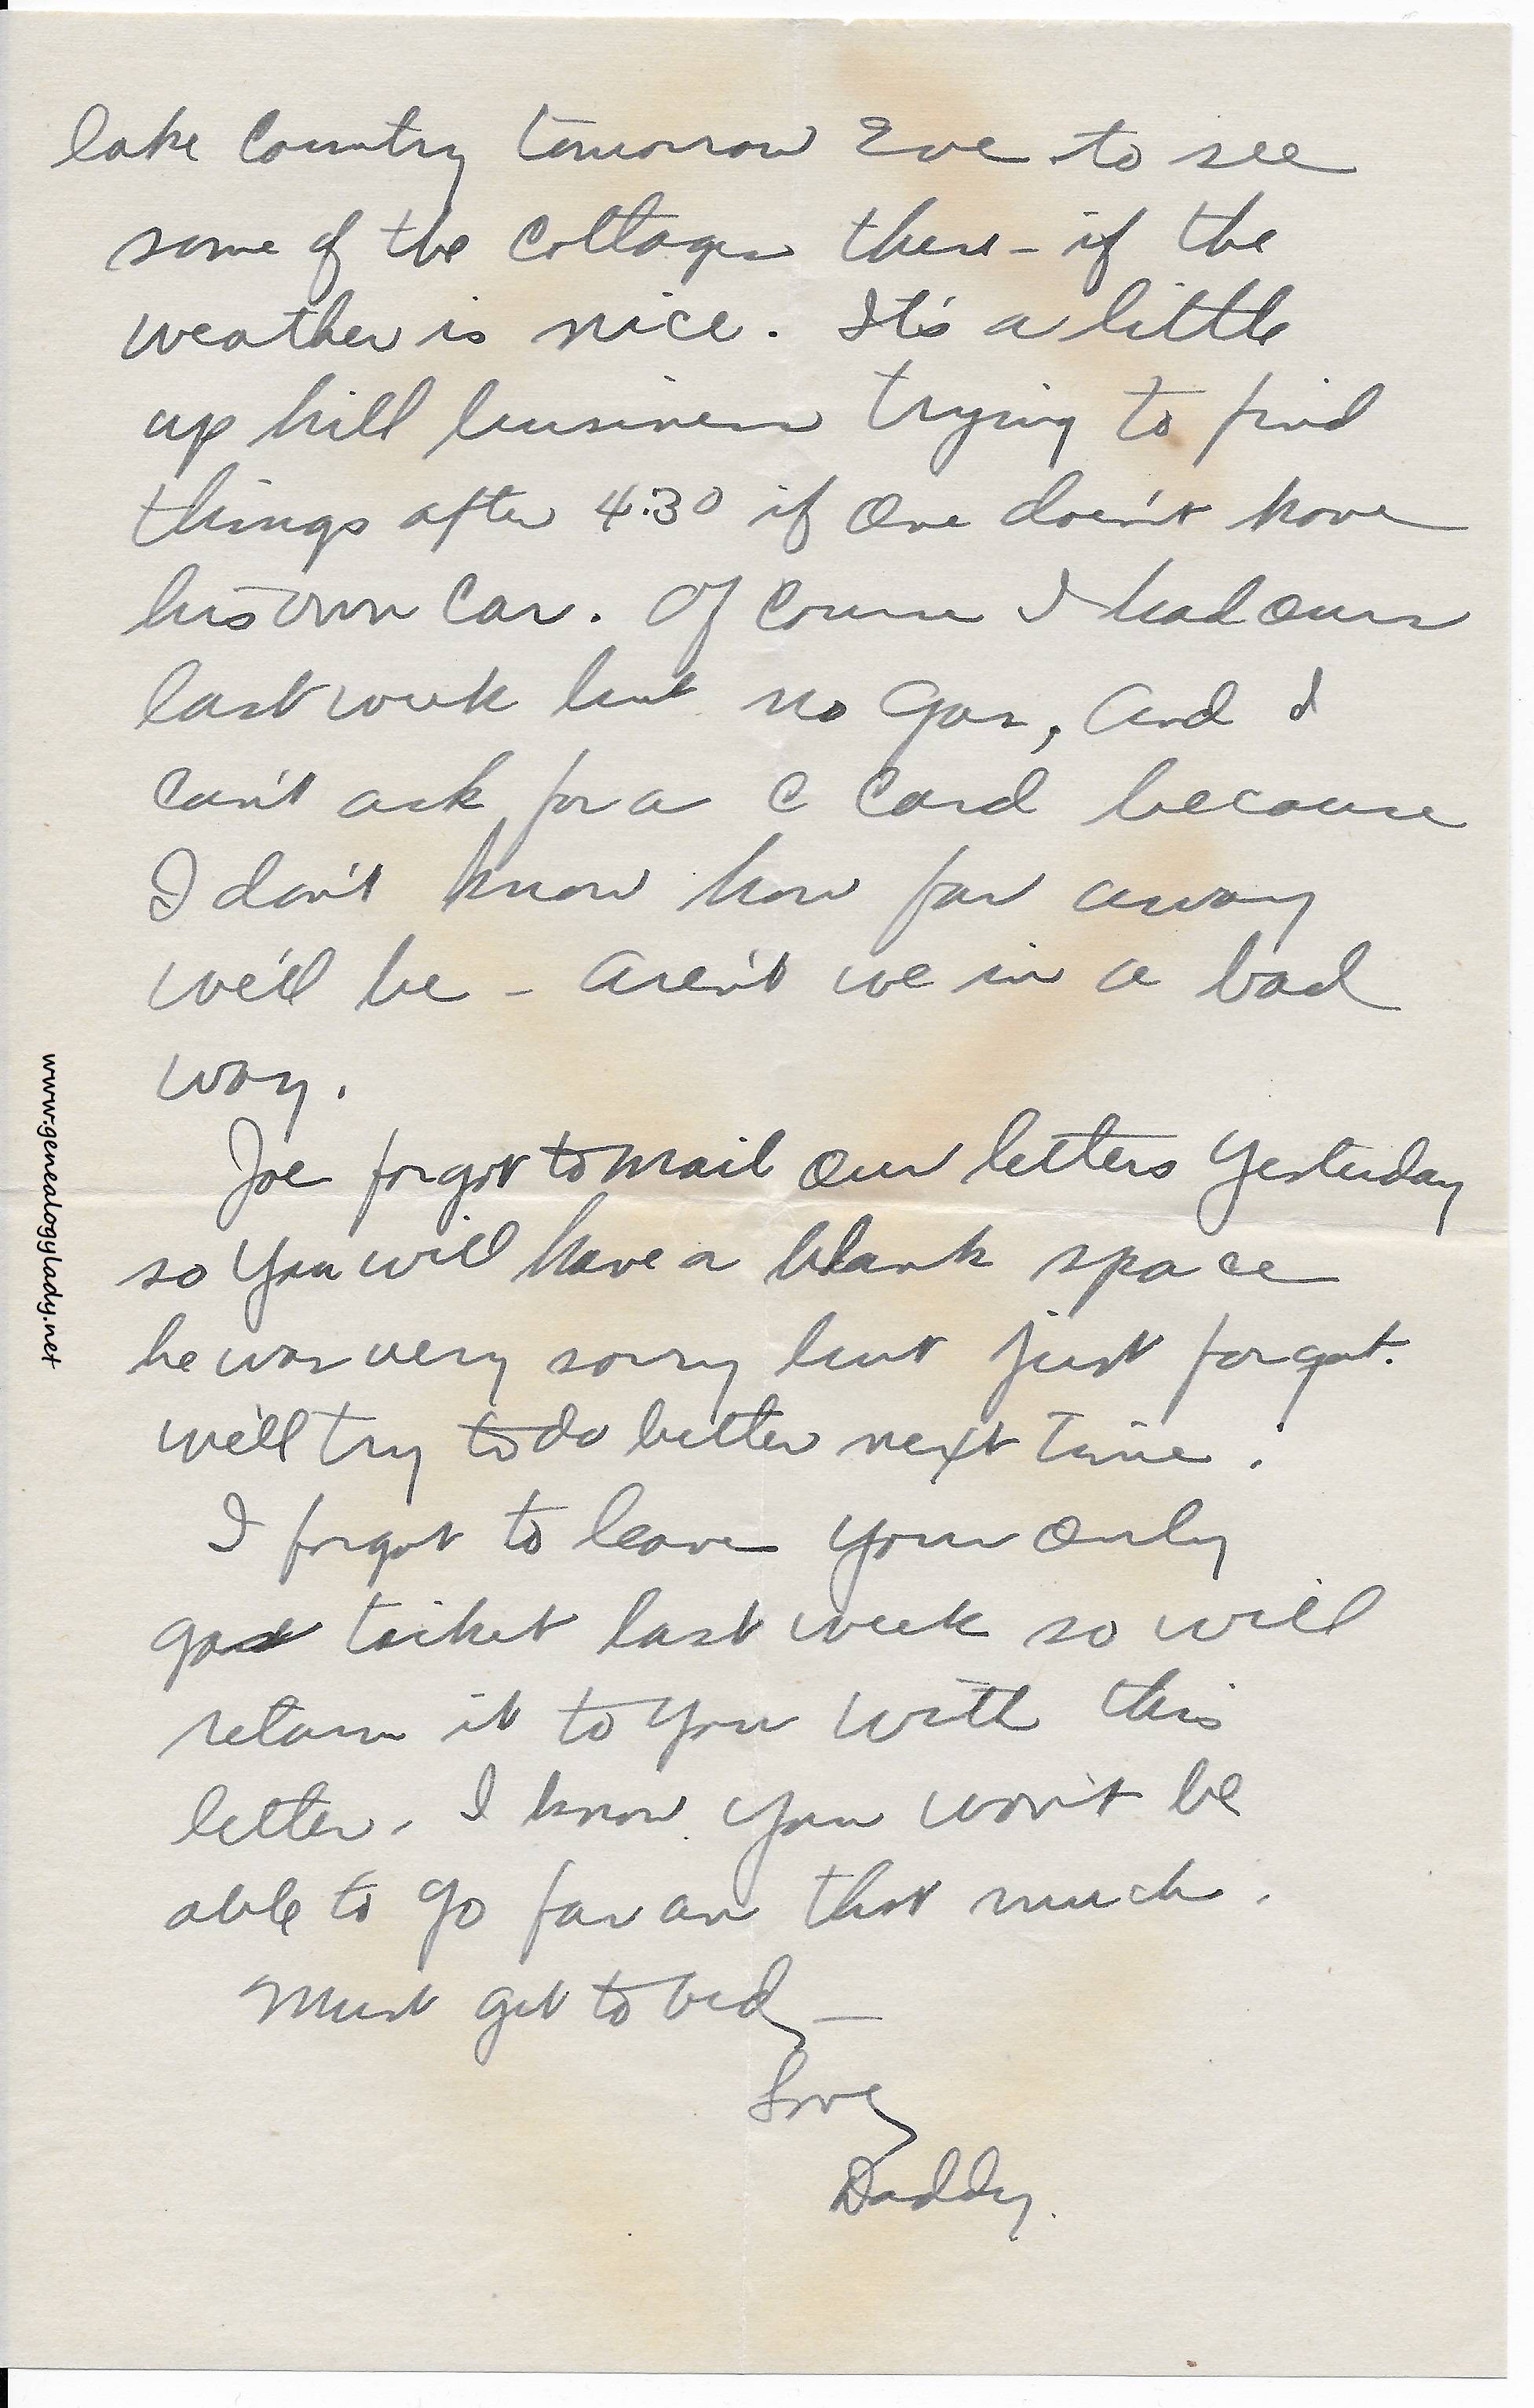 lake Country tomorrow Eve to see
some of the Cottages there - if the
weather is nice. It's a little
up hill business trying to find
things after 4:30 if one doesn't have
his own Car. Of Course I had ours
last week but no gas, and I
can't ask for a C Card because
I don't know how far away
we'll be - aren't we in a bad
way.
Joe forgot to mail our letters yesterday
so you will have a blank space
he was very sorry but just forgot.
We'll try to do better next time.
I forgot to leave your only
gas ticket last week so will
return it to you with this
letter. I know you won't be
able to go far on that much.
Must get to bed —
Love
Daddy.
www.genealogylady.net